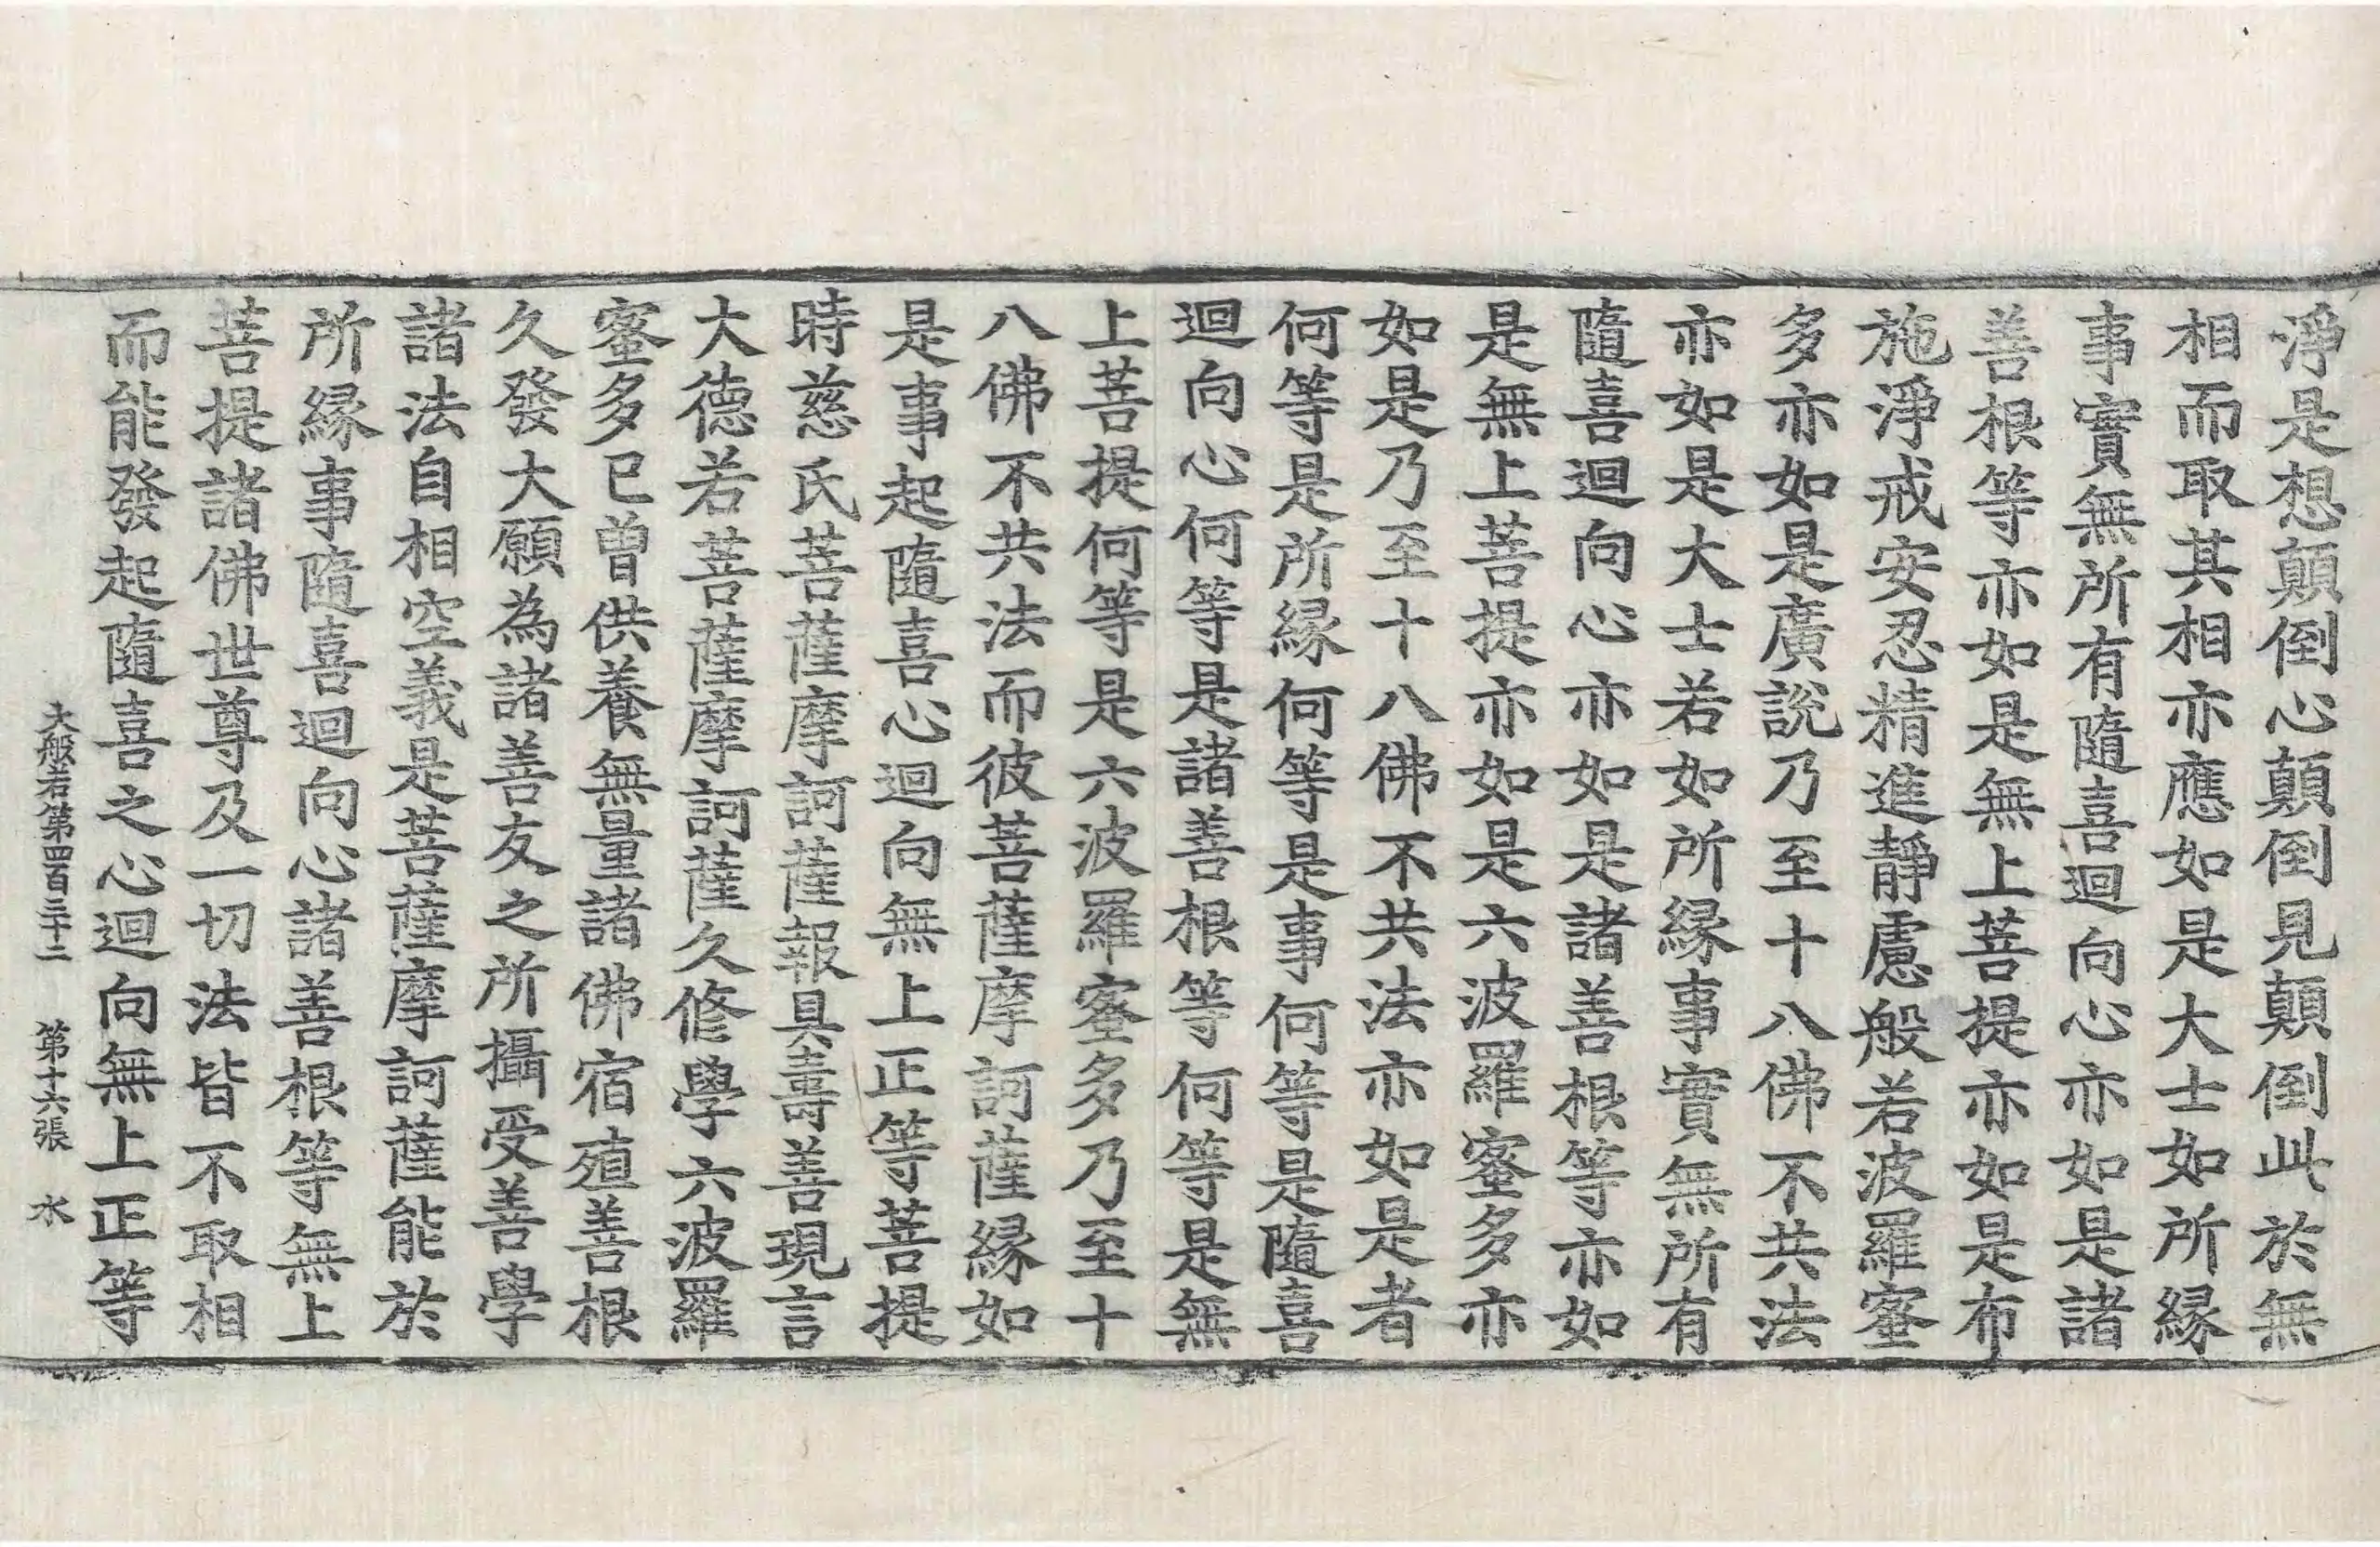 淨是想顛倒心顛倒見顛倒此於無
相而取其相亦應如是大士如所縁
事實無所有隨喜迴向心亦如是諸
善根等亦如是無上菩提亦如是布
施淨戒安忍精進靜慮般若波羅蜜
多亦如是廣說乃至十八佛不共法
亦如是大士若如所縁事實無所有
隨喜迴向心亦如是諸善根等亦如
是無上菩提亦如是六波羅蜜多亦
如是乃至十八佛不共法亦如是者
何等是所縁何等是事何等是隨喜
迴向心何等是諸善根等何等是無
上菩提何等是六波羅蜜多乃至十
八佛不共法而彼菩薩摩訶薩縁如
是事起隨喜心迴向無上正等菩提
時慈氏菩薩摩訶薩報具壽善現言
大德若菩薩摩訶薩久修學六波羅
蜜多已曾供養無量諸佛宿殖善根
久發大願為諸善友之所攝受善學
諸法自相空義是菩薩摩訶薩能於
所縁事隨喜迴向心諸善根等無上
菩提諸佛世尊及一切法皆不取相
而能發起隨喜之心迴向無上正等
大般若第四百三十二 第十六張 水